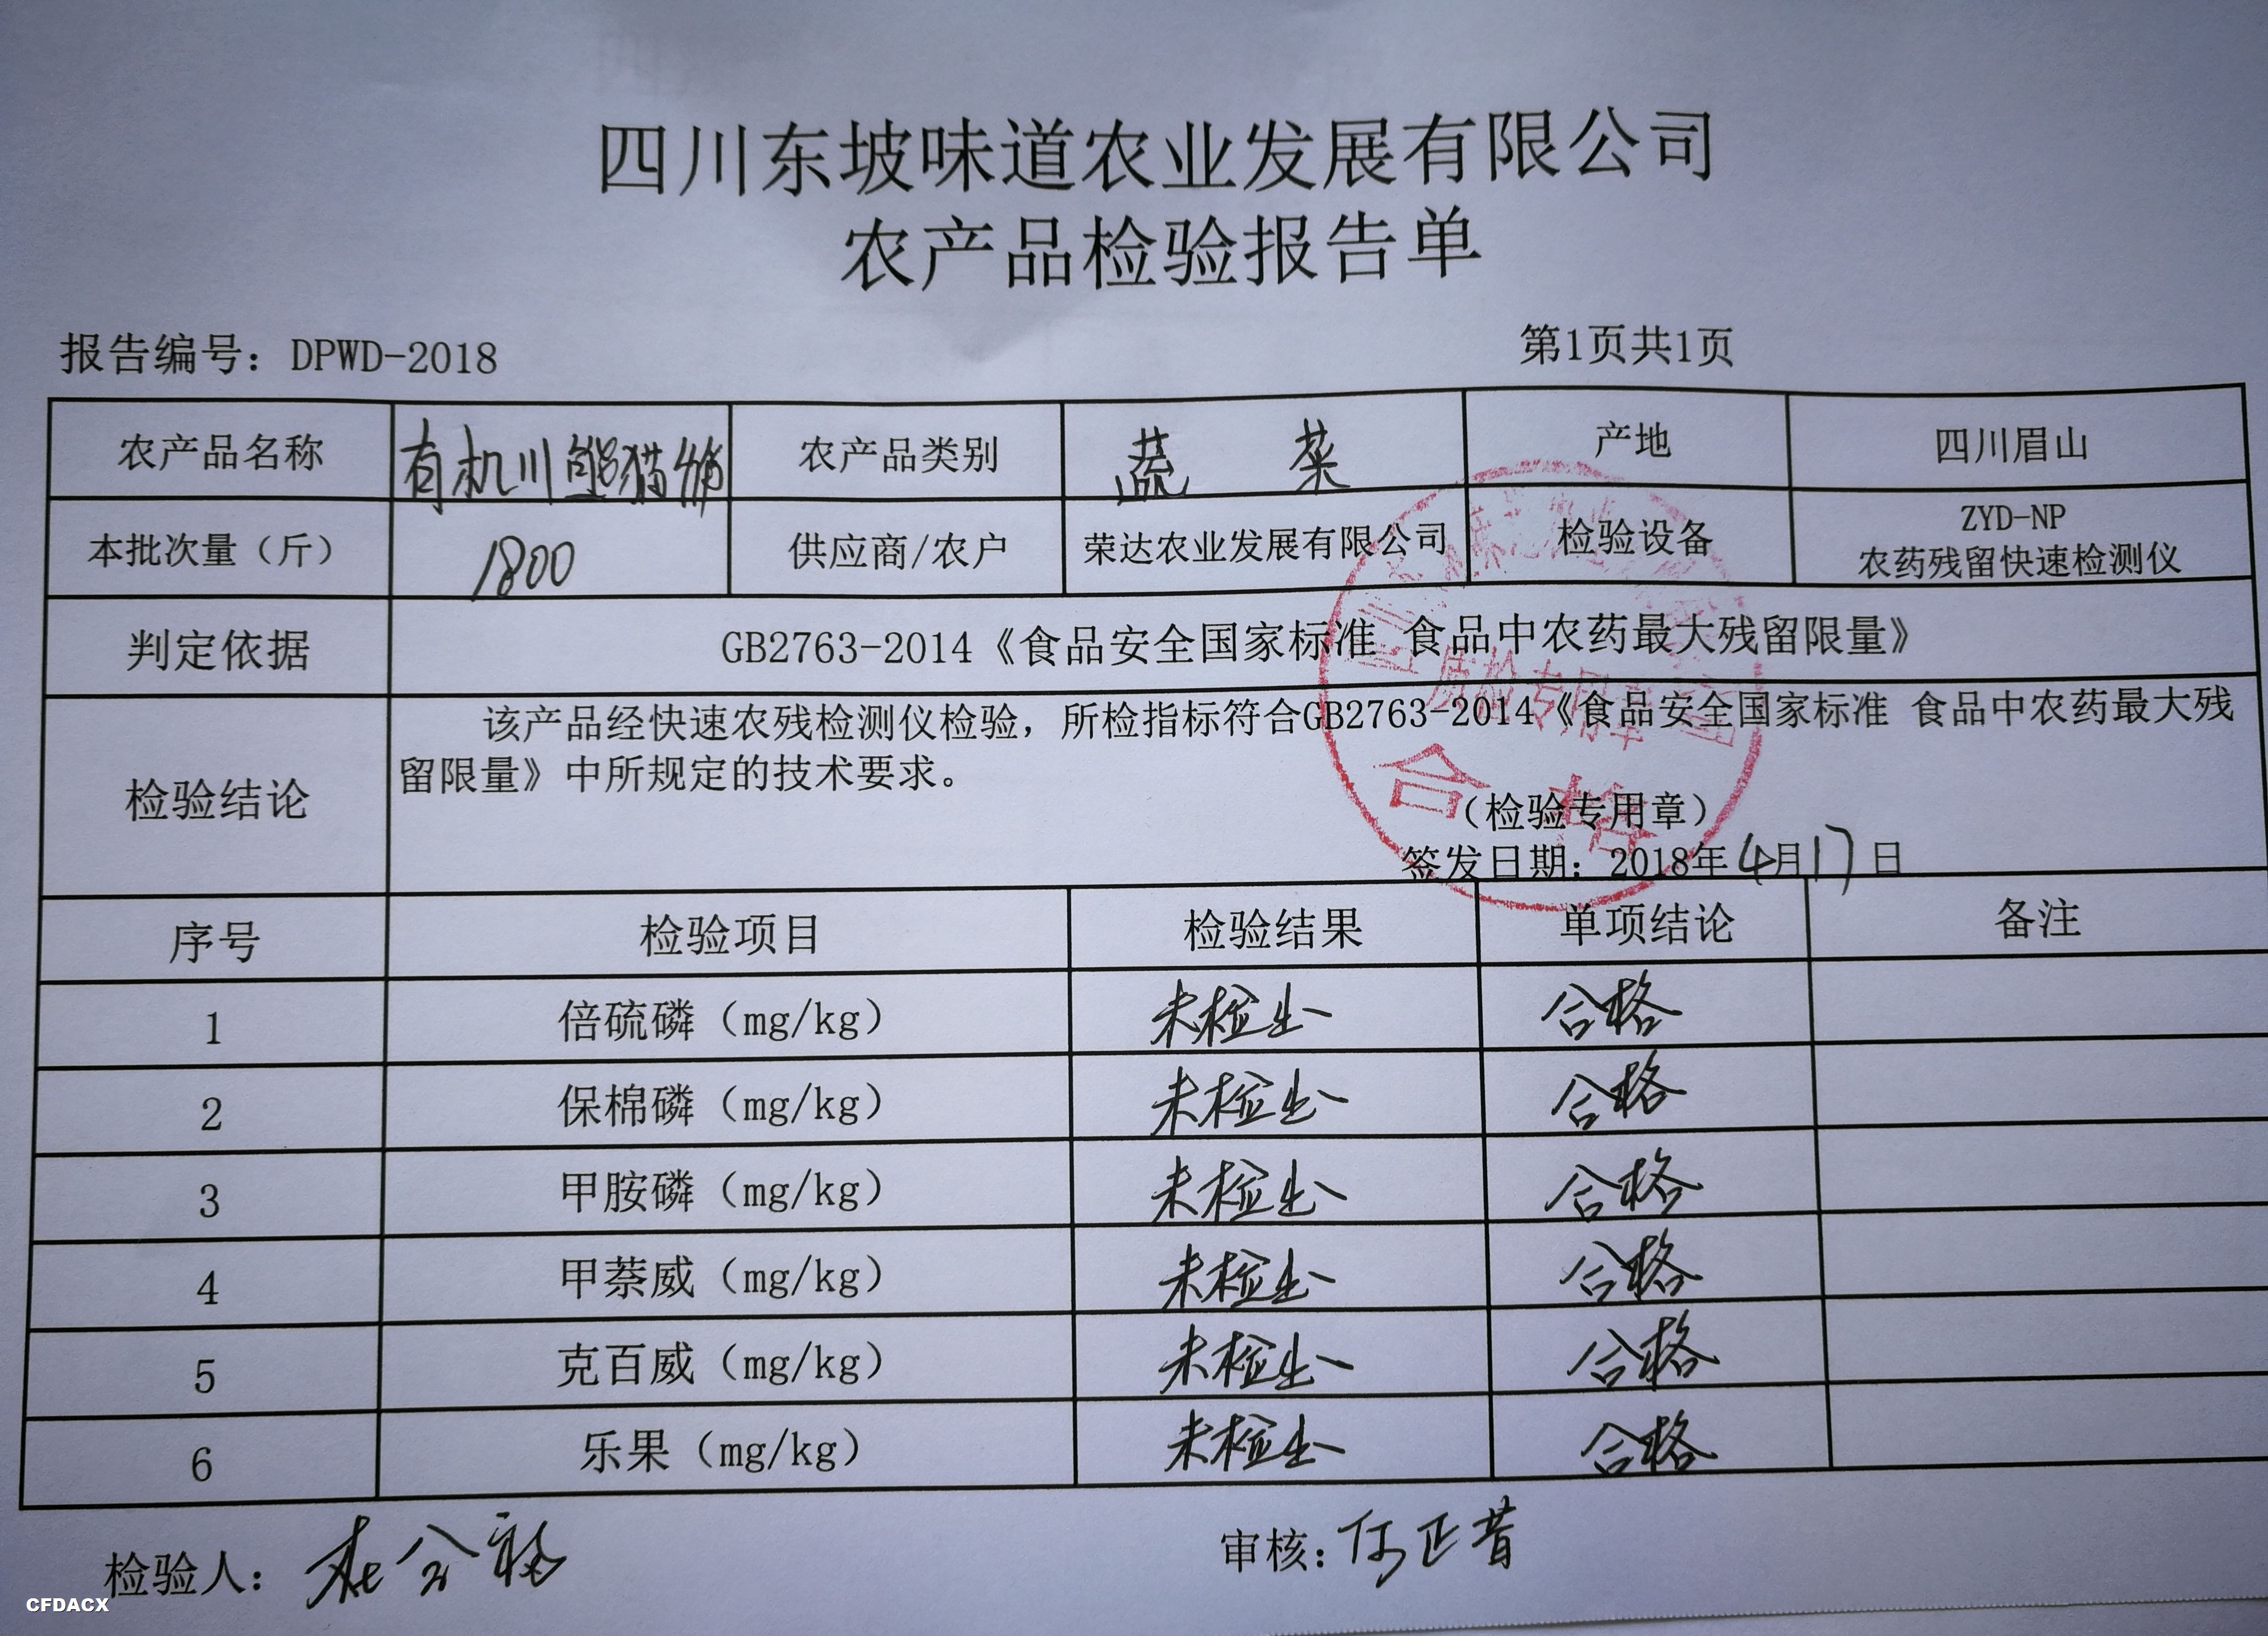 四川东坡味道农业发展有限公司
农产品检验报告单
报告编号：DPWD-2018 第1页共1页
农产品名称 有机川熊猫 农产品类别 蔬菜 产地 四川眉山
本批次量（斤） 1800 供应商/农户 荣达农业发展有限公司 检验设备 ZYD-NP
农药残留快速检测仪
判定依据 GB2763-2014《食品安全国家标准 食品中农药最大残留限量》
检验结论 该产品经快速农残检测仪检验，所检指标符合GB2763-2014《食品安全国家标准 食品中农药最大残
留限量》中所规定的技术要求。
质检专用章
合格
（检验专用章）
签发日期：2018年4月17日
序号 检验项目 检验结果 单项结论 备注
1 倍硫磷（mg/kg） 未检出 合格
2 保棉磷（mg/kg） 未检出 合格
3 甲胺磷（mg/kg） 未检出 合格
4 甲萘威（mg/kg） 未检出 合格
5 克百威（mg/kg） 未检出 合格
6 乐果（mg/kg） 未检出 合格
检验人： 审核：
CFDACX